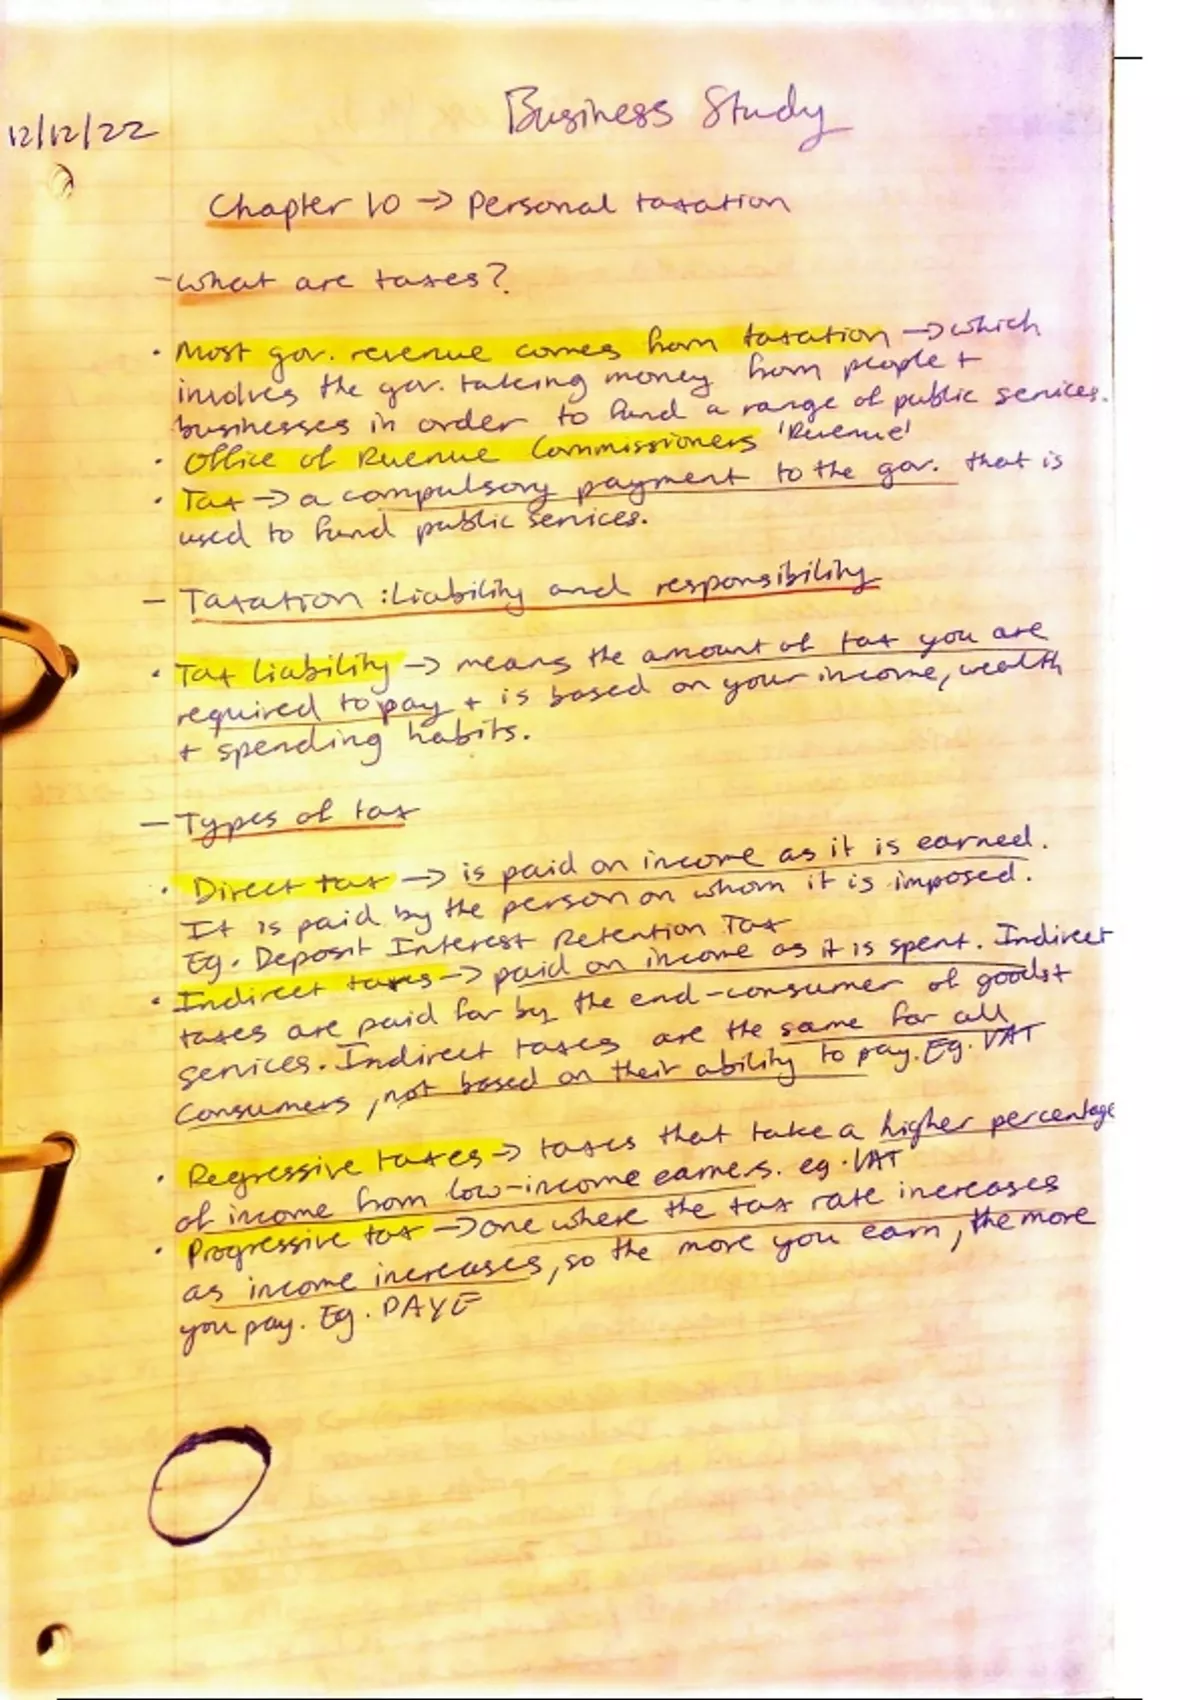 Business Study
12/12/22
Chapter 10 → Personal taxation
- What are taxes?
• Most gov. revenue comes from taxation → which
involves the gov. taking money from people +
businesses in order to fund a range of public services.
• Office of Revenue Commissioners 'Revenue'
• Tax → a compulsory payment to the gov. that is
used to fund public services.
- Taxation : Liability and responsibility
• Tax liability → means the amount of tax you are
required to pay + is based on your income, wealth
+ spending habits.
- Types of tax
• Direct tax → is paid on income as it is earned.
It is paid by the person on whom it is imposed.
Eg. Deposit Interest Retention Tax
• Indirect taxes → paid on income as it is spent. Indirect
taxes are paid for by the end-consumer of goods +
services. Indirect taxes are the same for all
Consumers, not based on their ability to pay. Eg. VAT
• Regressive taxes → taxes that take a higher percentage
of income from low-income earners. eg. VAT
• Progressive tax → one where the tax rate increases
as income increases, so the more you earn, the more
you pay. Eg. PAYE